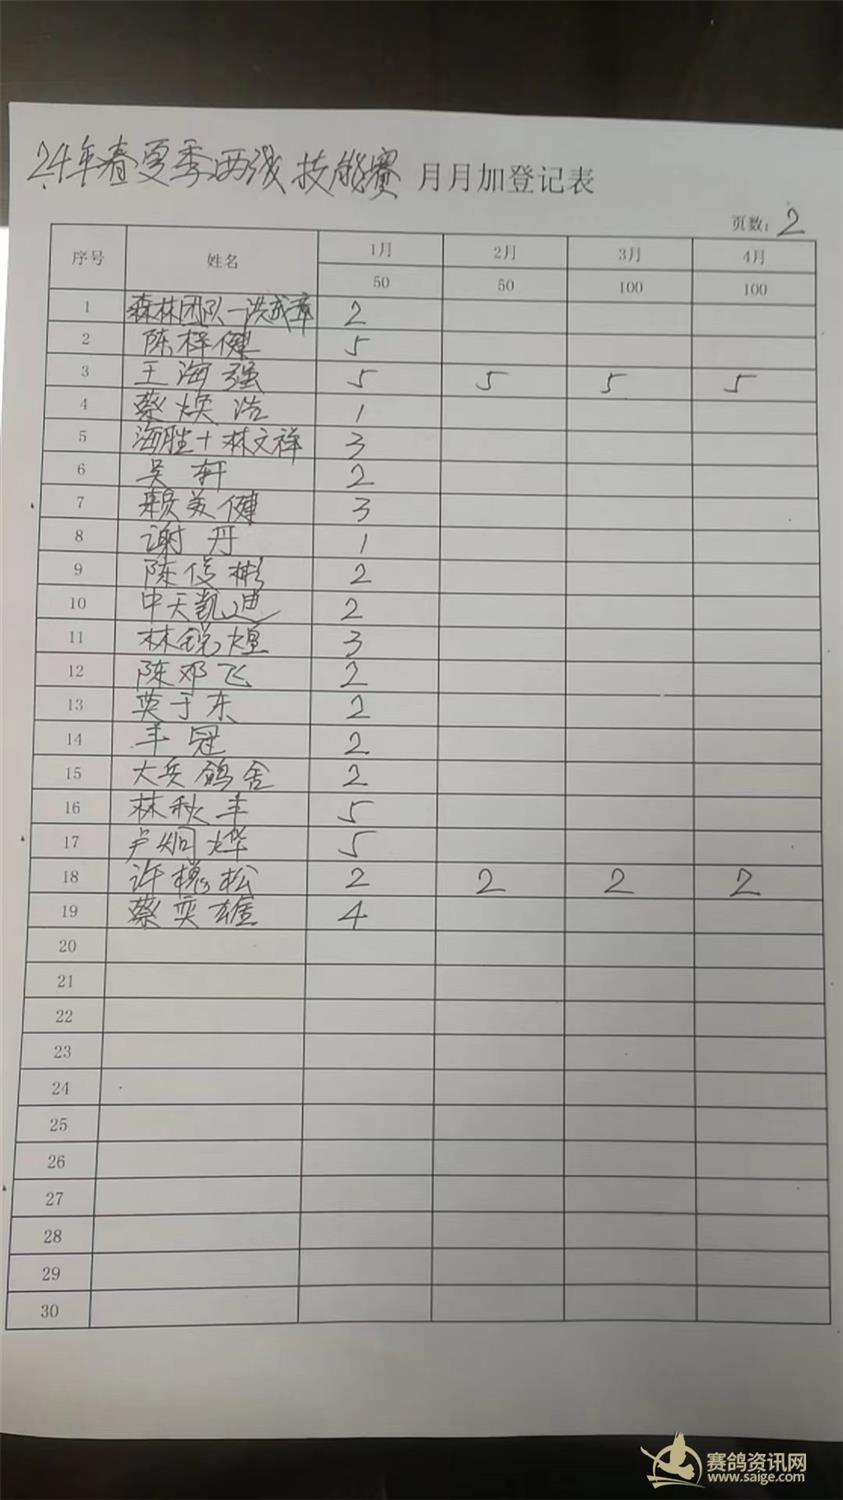 24年春夏季两线技能赛 月月加登记表
页数: 2
序号 姓名 1月 2月 3月 4月
50 50 100 100
1 森林团队一洪成章 2
2 陈梓健 5
3 王海强 5 5 5 5
4 蔡焕浩 1
5 海胜+林文祥 3
6 吴轩 2
7 赖美健 3
8 谢丹 1
9 陈俊彬 2
10 中天凯迪 2
11 林锐煌 3
12 陈邓飞 2
13 英于东 2
14 丰冠 2
15 大兵鸽舍 2
16 林秋丰 5
17 卢炯烨 5
18 许槐松 2 2 2 2
19 蔡奕雄 4
20
21
22
23
24
25
26
27
28
29
30
赛鸽资讯网
www.saige.com